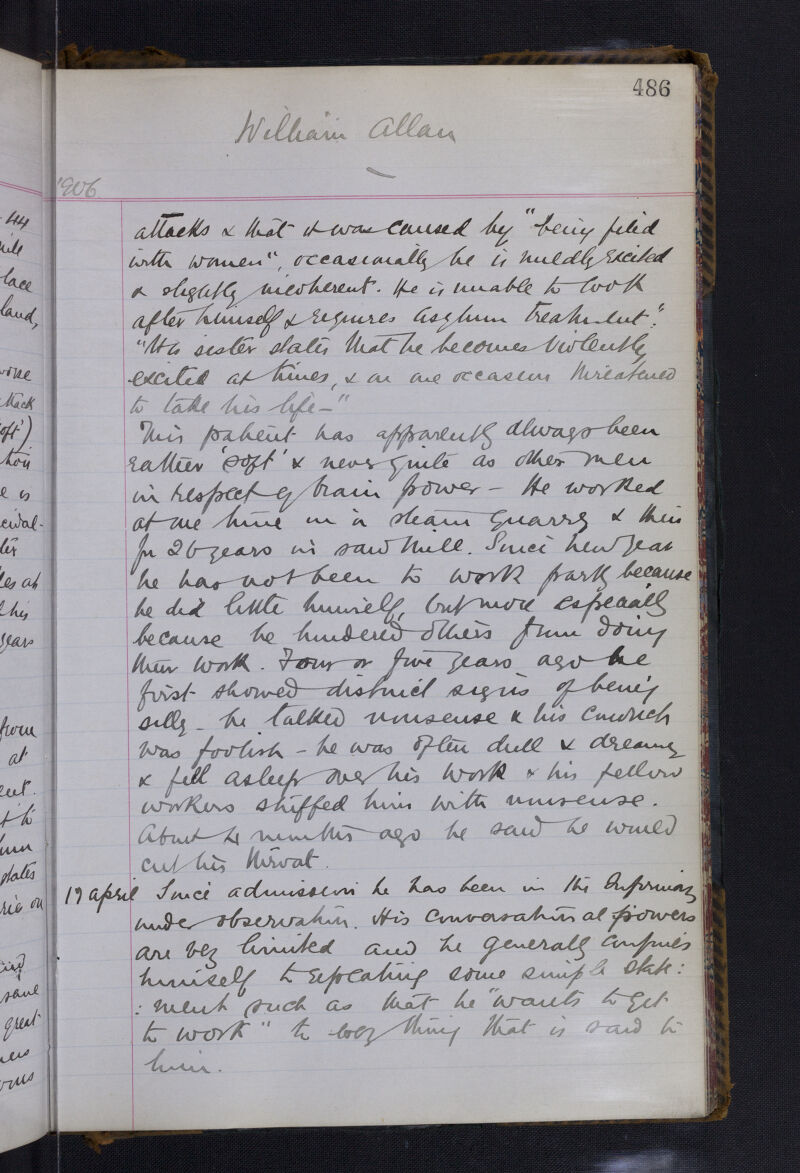 486
William Allan
1906.
attacks & that it was caused by "being
with women", occasionally he is mildly excited
& slightly incoherent. He is unable to look
after himself & requires asylum treatment".
"His sister states that he becomes violently
excited at times, & on one occasion threatened
to take his life-"
This patient has apparently always been
rather 'soft' & never quite as other men
in respect of brain power - He worked
at one time in a quarry & then
for 20 years in saw mill. Since new year
he has not been to work partly because
he did little himself, but more especially
because he hindered others from doing
their work. Four or five years ago he
first showed distinct signs of being
silly - he talked nonsense & his conduct
was foolish - he was often dull & dreamy
& fell asleep over his work & his fellow
workers stuffed him with nonsense.
About 4 months ago he said he would
cut his throat.
19 april Since admission he has been in the Infirmary
under observation. His conversational powers
are very limited and he generally confines
himself to repeating some simple state:
:ment such as that he "wants to get
to work" to everything that is said to
him.
44
lace
land,
soft')
e is
his
years
from
at
ent.
states
on
same
great